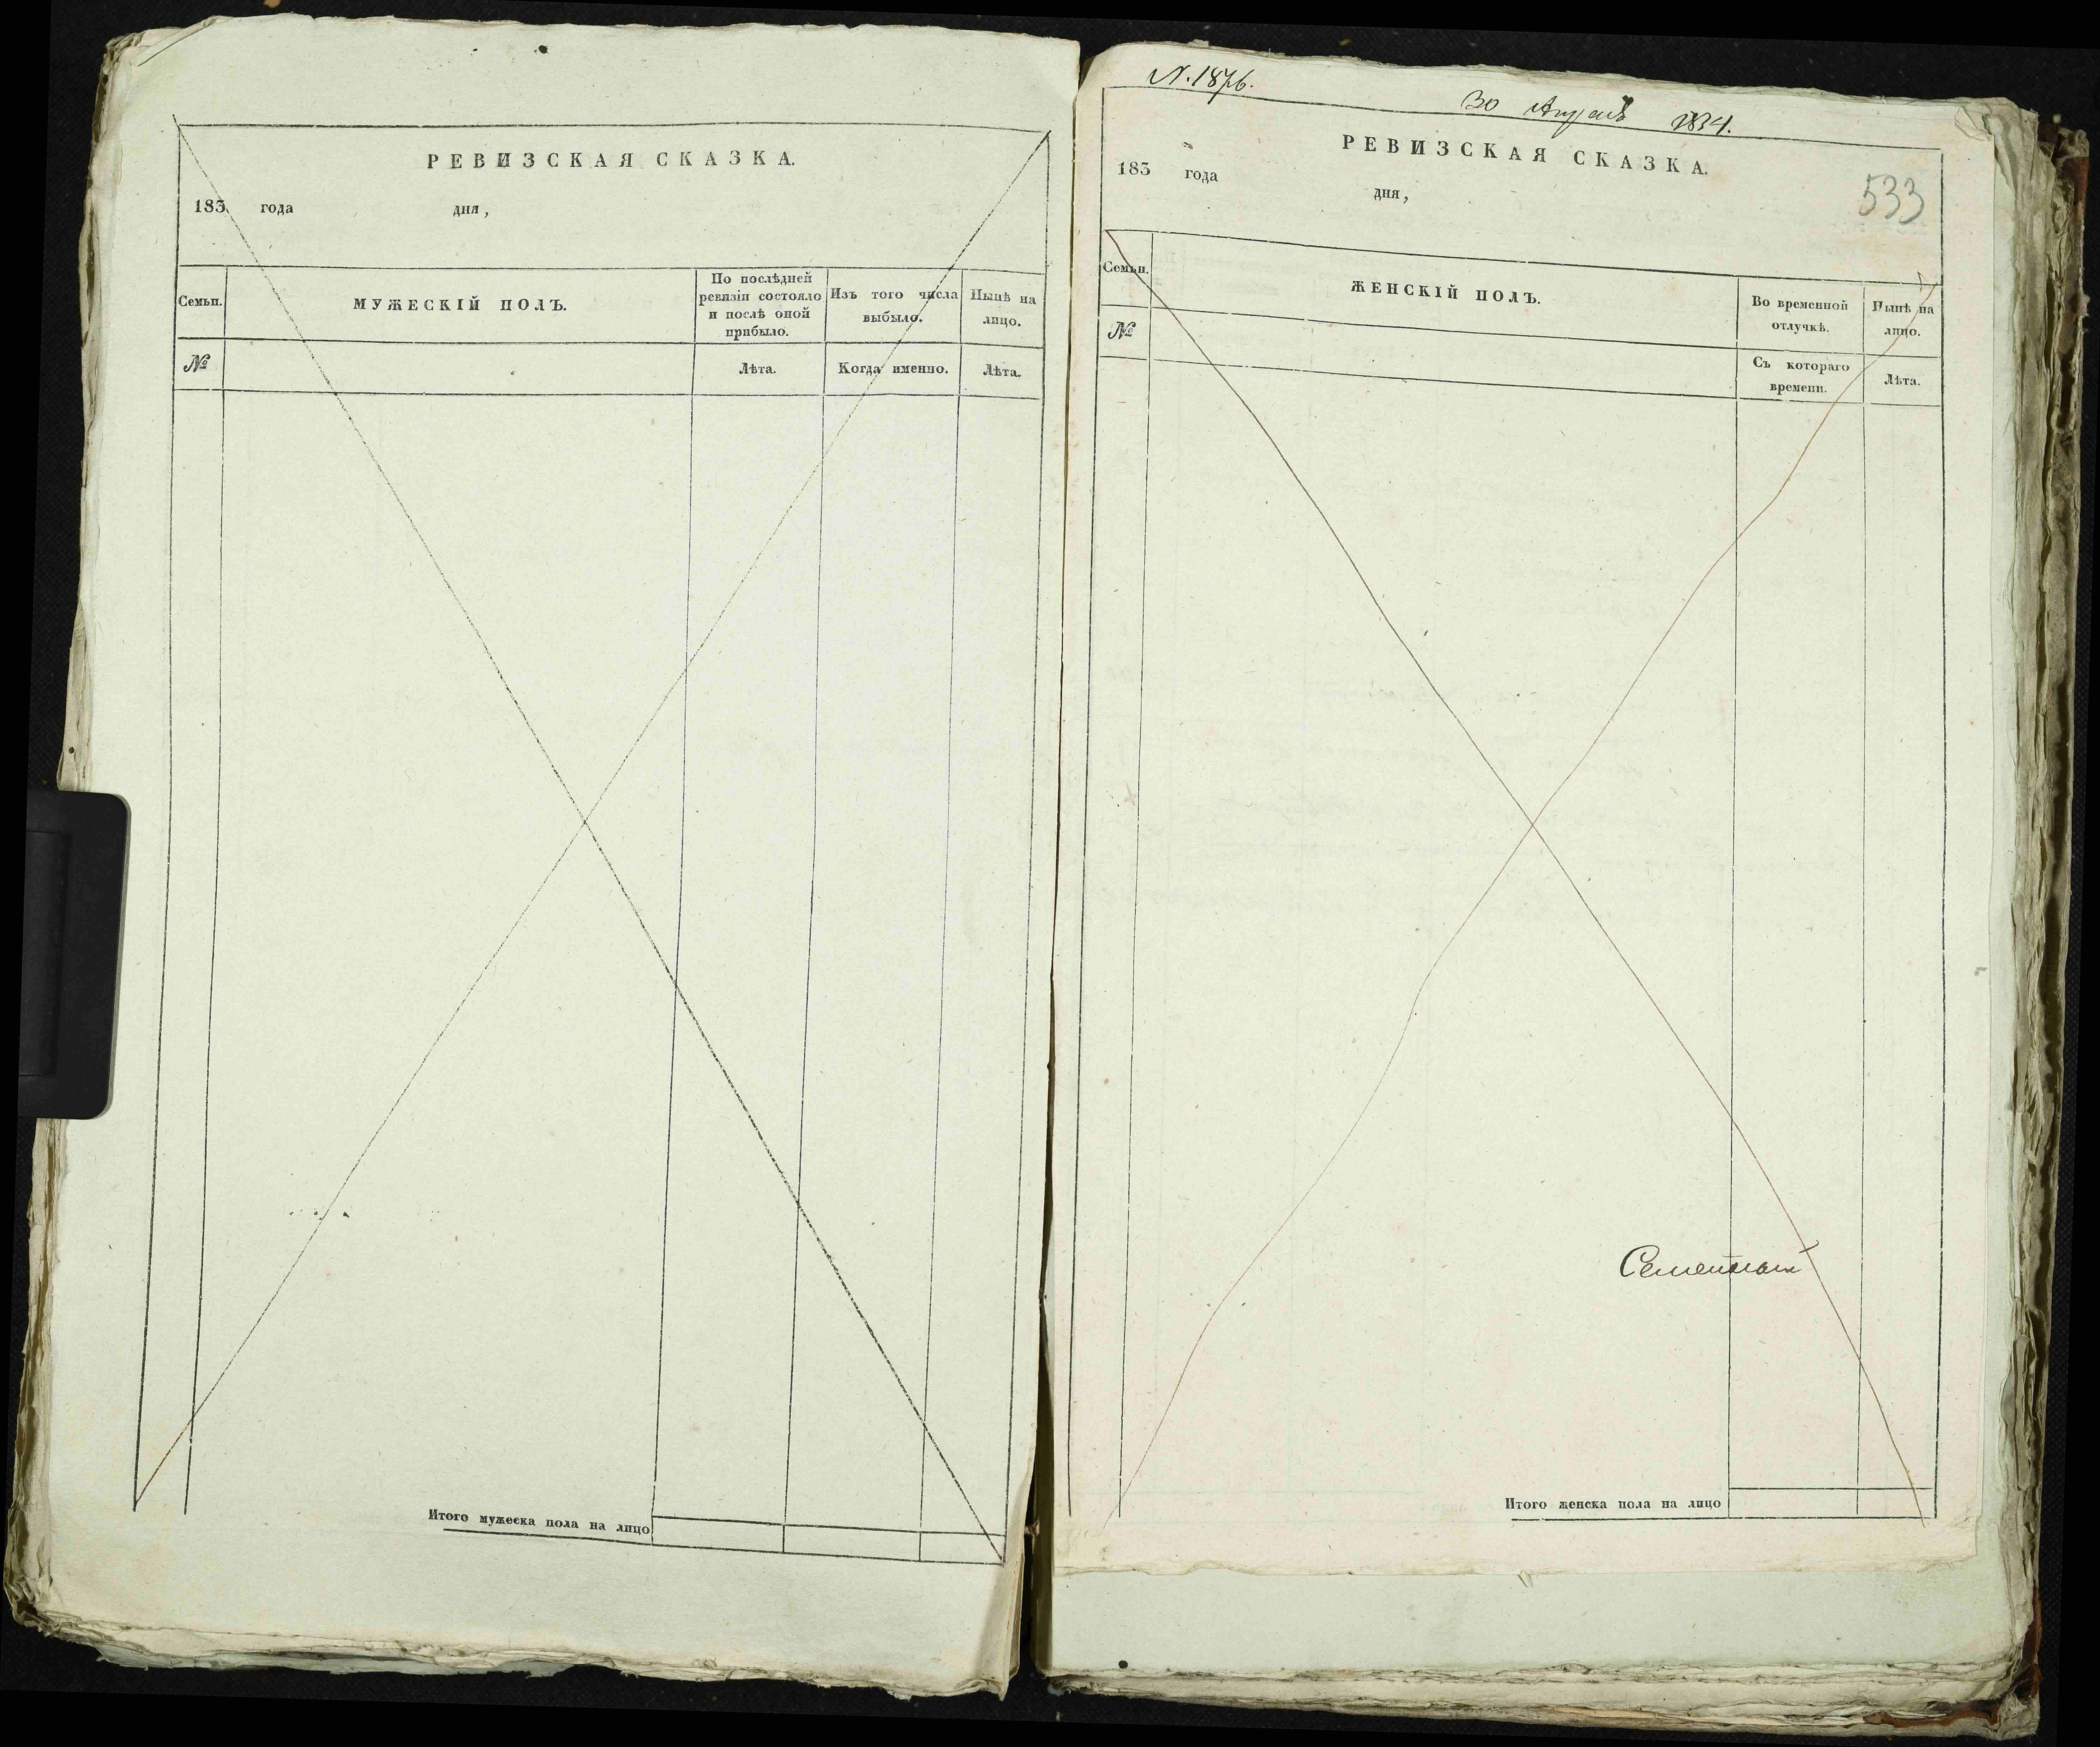 РЕВИЗСКАЯ СКАЗКА.
183 года дня,
Семьи.
МУЖЕСКІЙ ПОЛЪ.
По послѣдней
ревизіи состояло
и послѣ оной
прибыло.
Изъ того числа
выбыло.
Нынѣ на
лицо.
№
Лѣта.
Когда именно.
Лѣта.
Итого мужеска пола на лицо
N. 1876.
30 Апреля 1834.
РЕВИЗСКАЯ СКАЗКА.
183 года дня,
533
Семьи.
ЖЕНСКІЙ ПОЛЪ.
Во временной
отлучкѣ.
Нынѣ на
лицо.
№
Съ котораго
времени.
Лѣта.
Итого женска пола на лицо